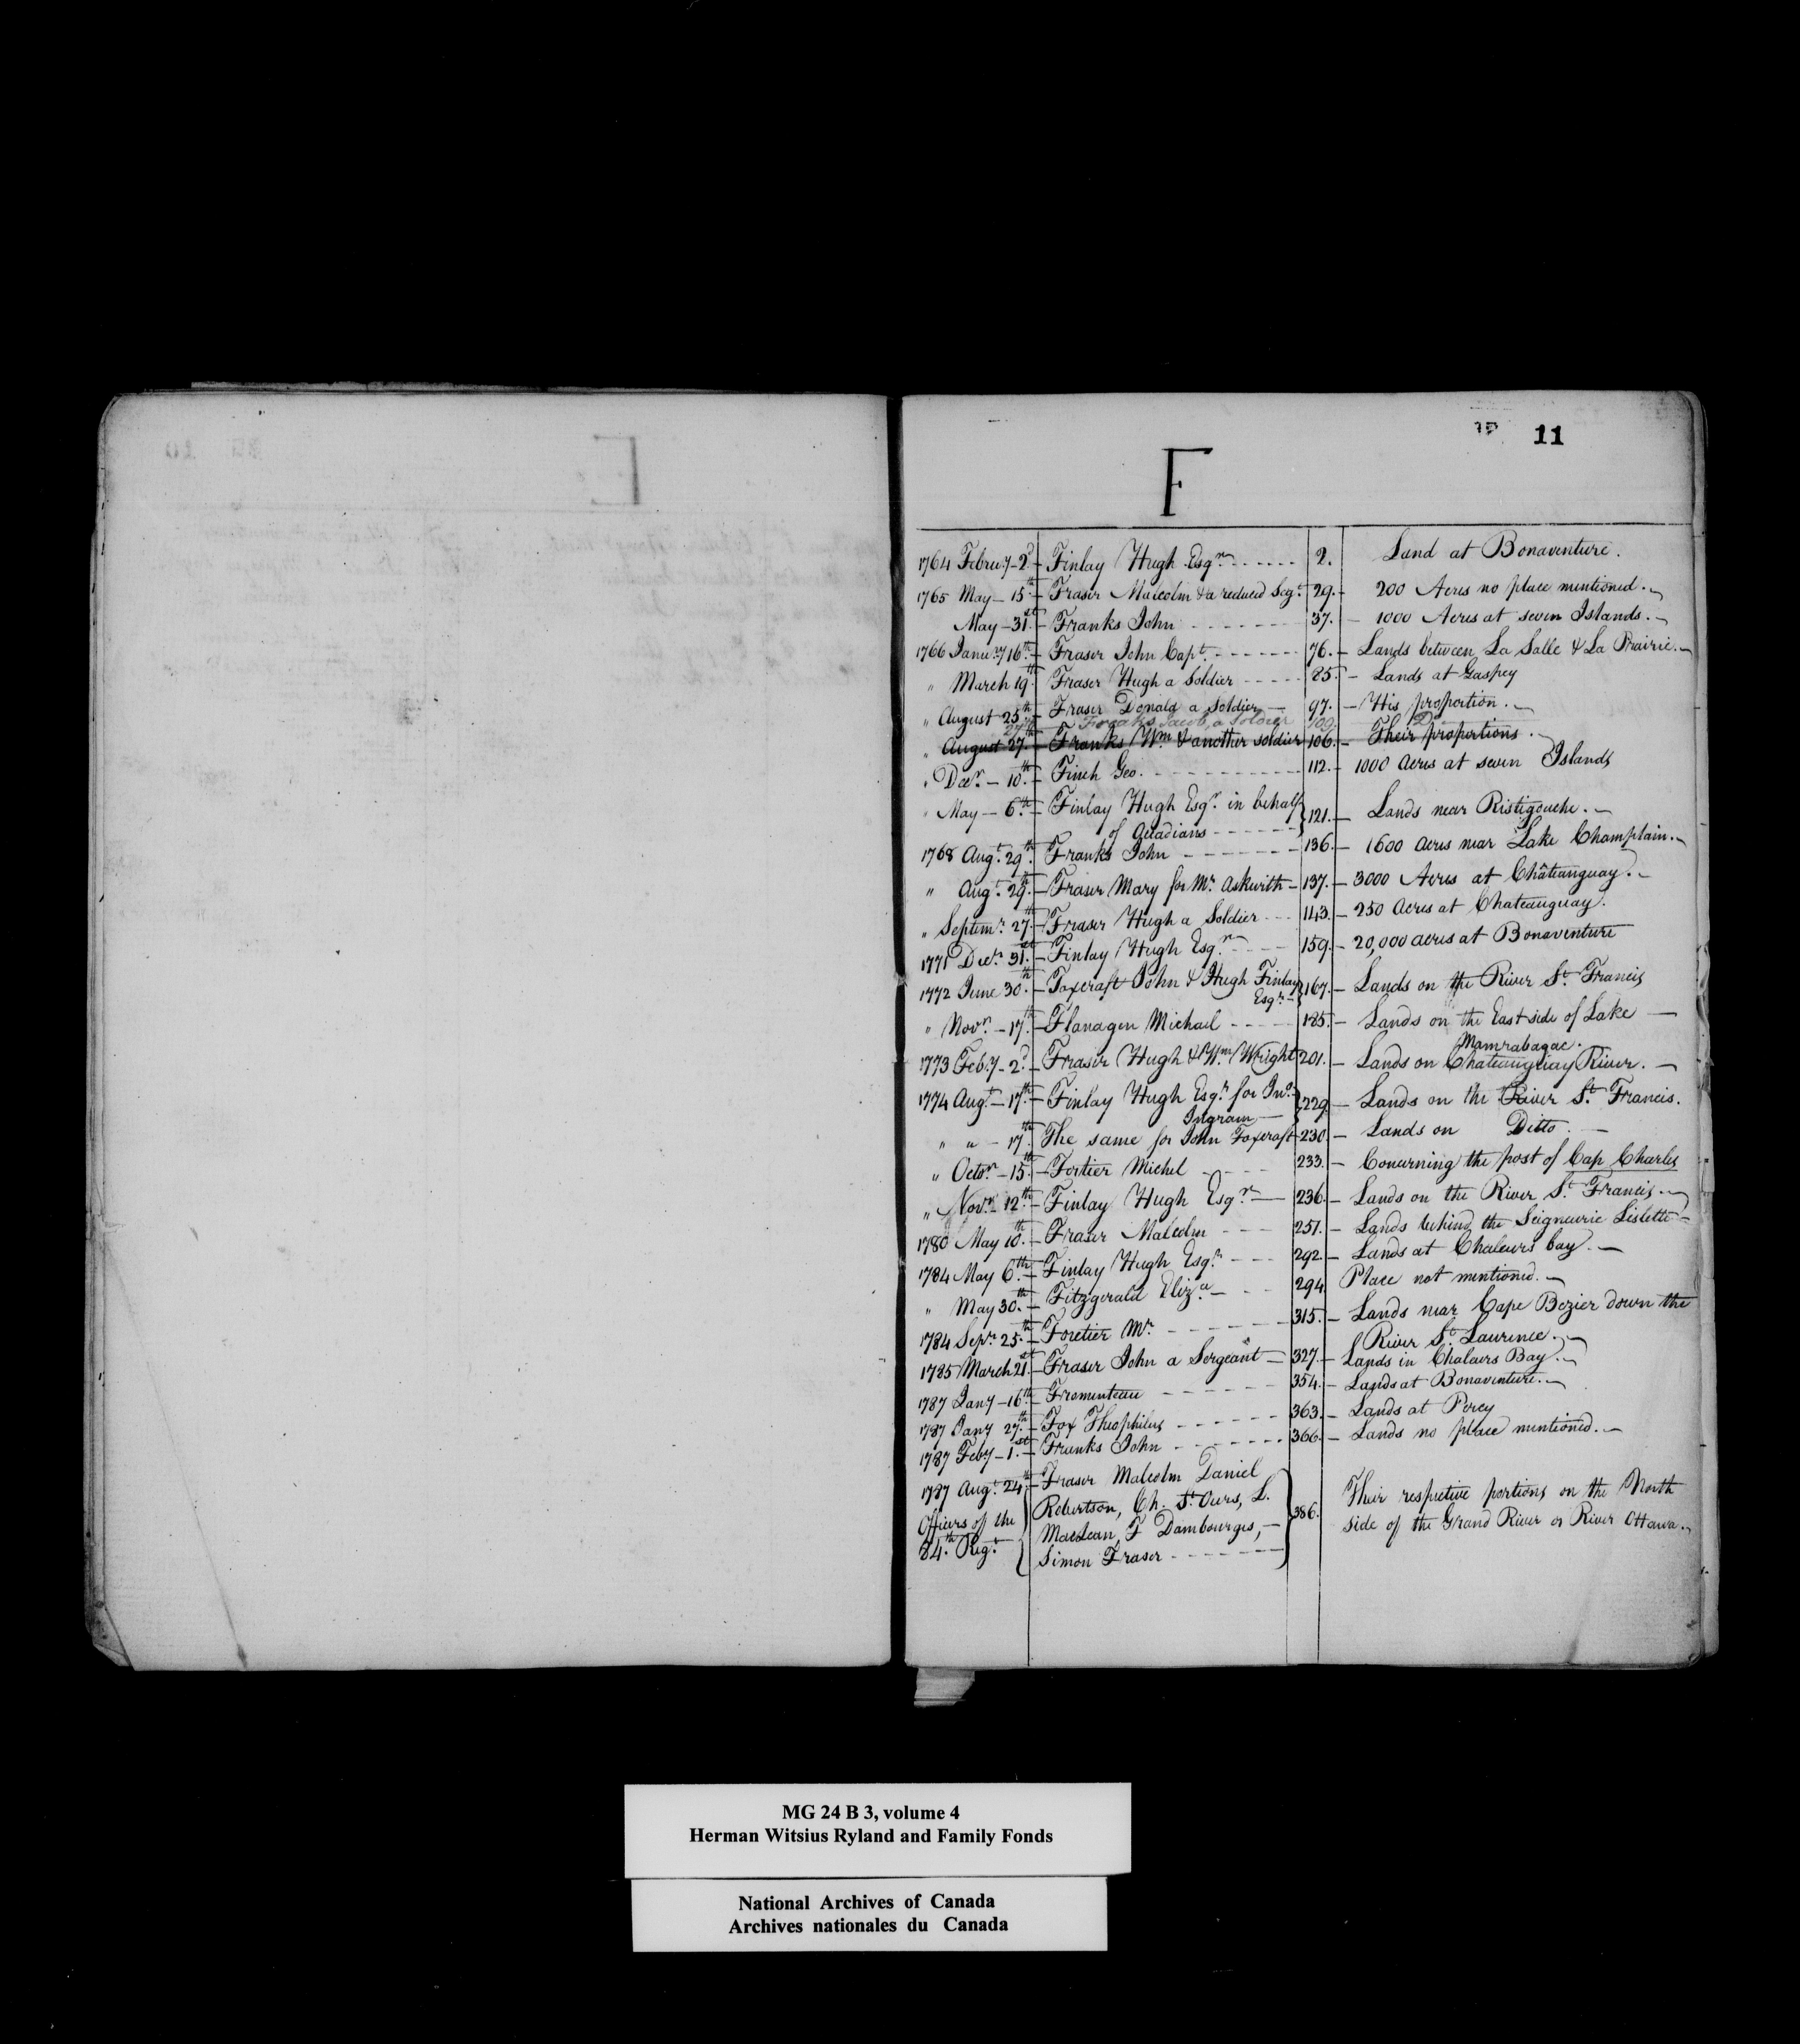 11
F
1764 Februy - 2d - Finlay Hugh Esqr ------ 2. Land at Bonaventure.
1765 May - 15th - Fraser Malcolm & a reduced Seg.t 29. - 200 Acres no place mentioned.
May - 31st - Franks John ------ 37. - 1000 Acres at seven Islands.
1766 Janury 16th - Fraser John Capt. ------ 76. - Lands between La Salle & La Prairie.
" March 19th Fraser Hugh a Soldier ---- 85. - Lands at Gaspey
" August 25th - Fraser Donald a Soldier - 97. - His proportion.
27th Freaks Jacob, a Soldier 109. Do
" August 27th - Franks Wm & another soldier 106. - Their proportions.
" Decr. - 10th - Finch Geo. ------ 112. - 1000 acres at seven Islands
" May - 6th - Finlay Hugh Esqr. in behalf
of Acadians ----- } 121. - Lands near Ristigouche. -
1768 Augt. 29th. Franks John ------ 136. - 1600 acres near Lake Champlain.
" Augt. 29th. - Fraser Mary for Mr. Askwith - 137. - 3000 Acres at Châteauguay. -
" Septemr. 27th - Fraser Hugh a Soldier --- 143. - 250 Acres at Chateauguay.
1771 Decr. 31st. - Finlay Hugh Esqr. ---- 159. - 20,000 acres at Bonaventure
1772 June 30th. - Foxcraft John & Hugh Finlay
Esqr. - } 167. - Lands on the River St. Francis
" Novr. - 17th - Flanagen Michael ---- 185. - Lands on the East side of Lake
Mamrabagac.
1773 Feby - 2d - Fraser Hugh & Wm Wright 201. - Lands on Chateauguay River. -
1774 Augt. - 17th - Finlay Hugh Esqr. for Jno.
Ingram - } 229. - Lands on the River St. Francis.
" " - 17th The same for John Foxcraft 230. - Lands on Ditto. -
" Octor. - 15th - Fortier Michel ---- 233. - Concerning the post of Cap Charles
" Novr. - 12th - Finlay Hugh Esqr. - 236. - Lands on the River St. Francis.
1780 May 10th. - Fraser Malcolm --- 251. - Lands behind the Seigneurie Lislette -
1784 May 6th. - Finlay Hugh Esqr. --- 292. - Lands at Chaleurs bay. -
" May 30th. - Fitzgerald Eliza. --- 294. Place not mentioned.
1784 Sepr. 25th - Foretier Mr. ------ 315. - Lands near Cape Bezier down the
River St. Laurence.
1785 March 21st - Fraser John a Sergeant - 327. - Lands in Chaleurs Bay.
1787 Jany - 16th - Fromenteau ------ 354. - Lands at Bonaventure.
1787 Jany 27th - Fox Theophilus ------ 363. - Lands at Percy
1787 Feby - 1st - Franks John ------ 366. - Lands no place mentioned. -
1787 Augt. 24th - Fraser Malcolm Daniel
Officers of the Robertson, Ch. St. Ours, L. 386. Their respective portions on the North
84th. Regt. MacLean, F Dambourges, - side of the Grand River or River Ottawa.
Simon Fraser -------
MG 24 B 3, volume 4
Herman Witsius Ryland and Family Fonds
National Archives of Canada
Archives nationales du Canada